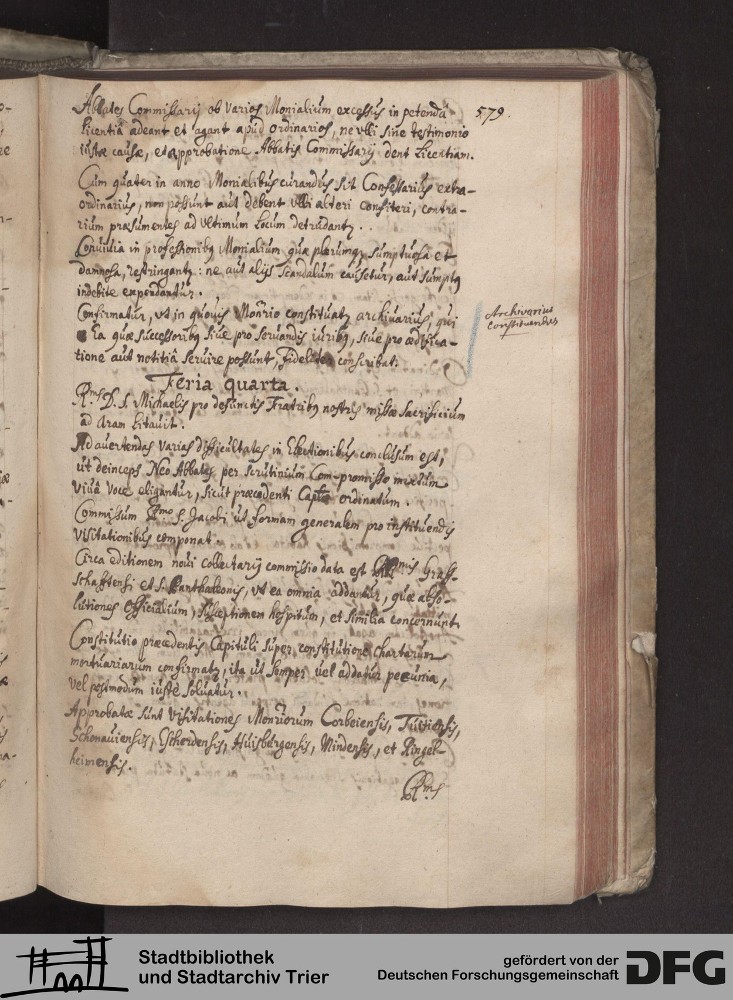 579.
Abbates Commissarij ob varios Monialium excessus in petenda
licentiâ adeant et agant apud ordinarios, ne ulli sine testimonio
iustæ causæ, et approbatione Abbatis Commissarij dent Licentiam.
Cum quater in anno Monialibus curandus sit Confessarius extra-
ordinarius, non possunt aut debent ulli alteri confiteri, contra-
rium præsumentes ad ultimum Locum detrudantz.
Conuiuia in professionibq Monialium quæ plerumqz sumptuosa et
damnosa, restringantz: ne aut alijs scandalum causetur, aut sumptq
indebite expendantur.
Confirmatur, ut in quouis Monrio constituatz archiuarius, qui
ea quæ successoribq siue pro seruandis iuribq, siue pro ædifica-
tione aut notitiâ seruire possunt, fideliter conscribat.
Archivarius
constituendus
Feria quarta.
Rms D. S. Michaelis pro defunctis Fratribq nostris missæ sacrificium
ad Aram litauit.
Ad auertendas varias difficultates in Electionibus conclusum est,
ut deinceps Neo Abbates per scrutinium Com-promisso mixtum
viuâ voce eligantur, sicut præcedenti Captlo ordinatum.
Commissum Rmo S. Jacobi ut formam generalem pro instituendis
visitationibus componat.
Circa editionem noui collectarij commissio data est Rmis Graff-
schafftensi et S. Panthaleonis, ut ea omnia addantur, quæ abso-
lutiones officialium, susceptionem hospitum, et similia concernunt.
Constitutio præcedentis Capituli super constitutione chartarum
mortuariarum confirmatz, ita ut semper uel addatur pecunia,
vel postmodum iustè soluatur.
Approbatæ sunt visitationes Monriorum Corbeiensis, Tuitiensis,
Schonauiensis, Gherdensis, Huisburgensis, Mindensis, et Ringel-
heimensis.
Rms
Stadtbibliothek
und Stadtarchiv Trier
gefördert von der
Deutschen Forschungsgemeinschaft
DFG